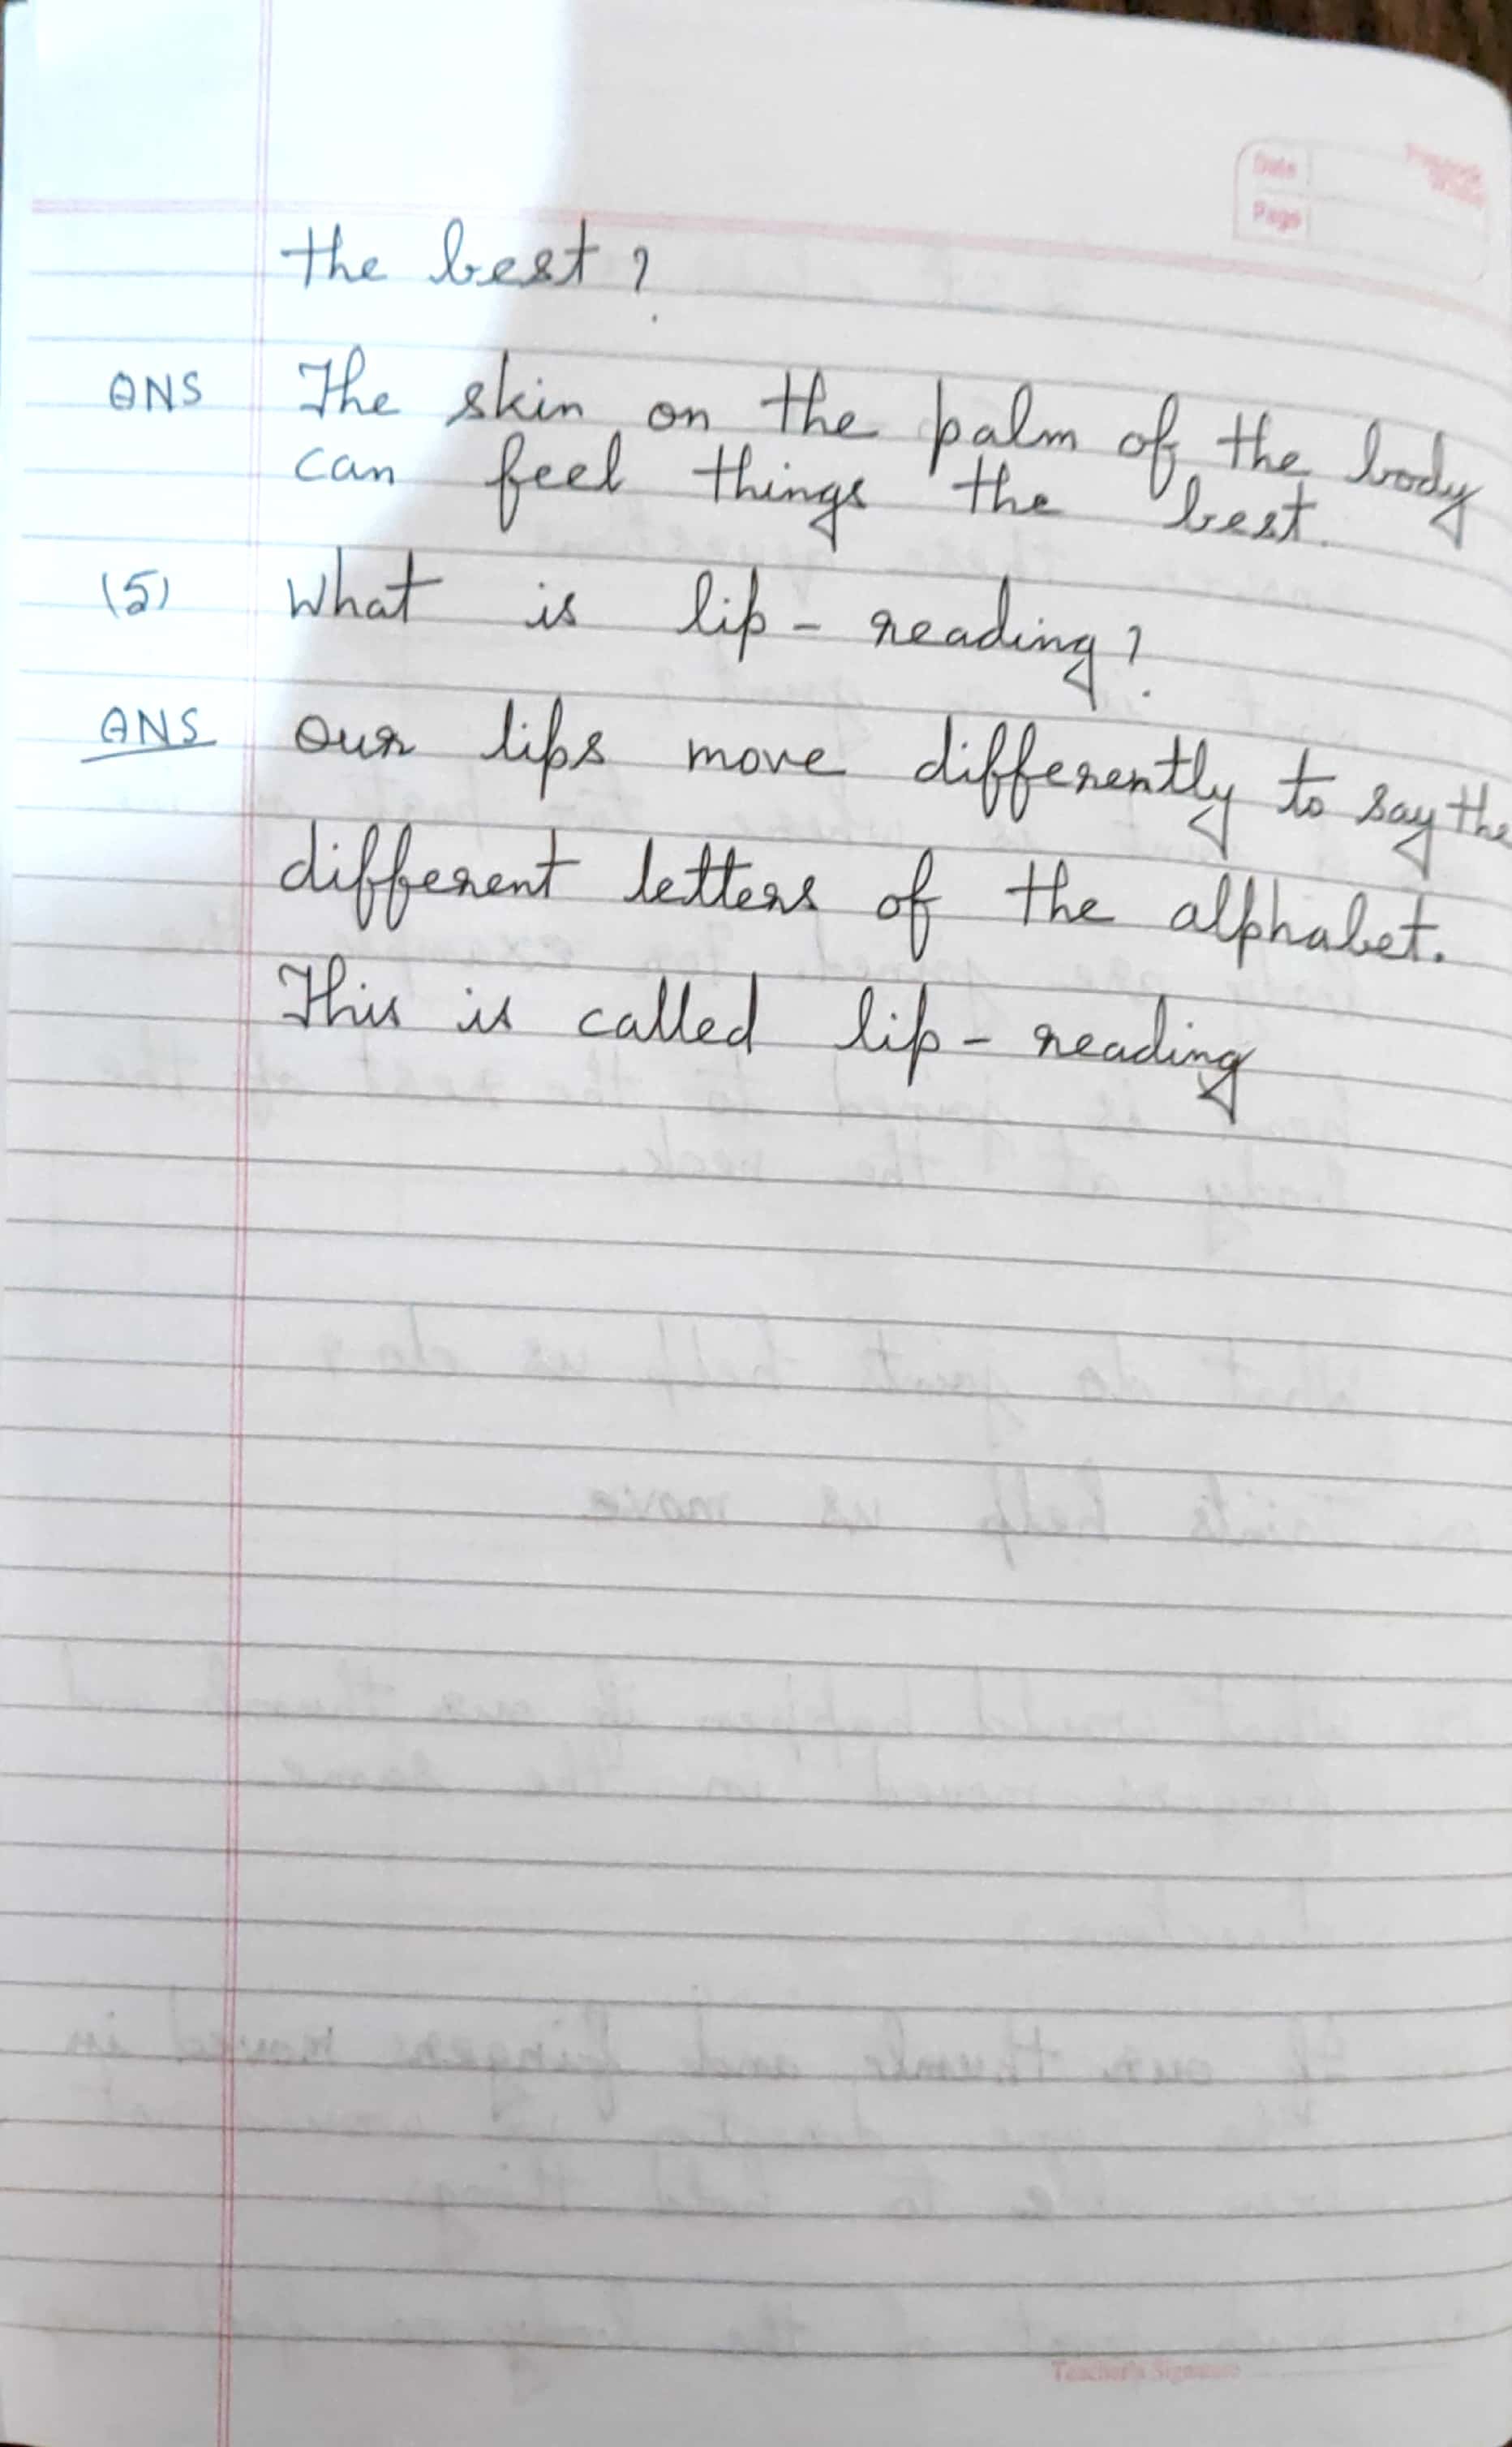 Date
Page
the best?
ANS The skin on the palm of the body
can feel things the best.
(5) What is lip-reading?
ANS Our lips move differently to say the
different letters of the alphabet.
This is called lip-reading
Teacher's Signature